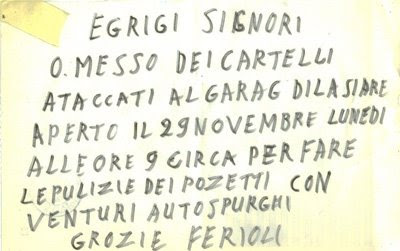 EGRIGI SIGNORI
O. MESSO DEI CARTELLI
ATACCATI AL GARAG DI LASIARE
APERTO IL 29 NOVEMBRE LUNEDI
ALLE ORE 9 CIRCA PER FARE
LE PULIZIE DEI POZETTI CON
VENTURI AUTOSPURGHI
GROZIE FERIOLI